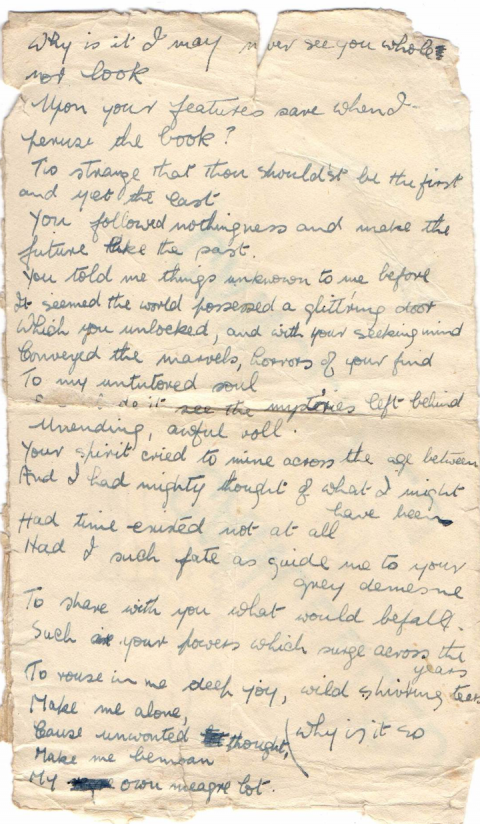 Why is it I may never see you whole
nor look
Upon your features save when I
peruse the book?
Tis strange that thou should'st be the first
and yet the last
You followed nothingness and make the
future like the past.
You told me things unknown to me before
It seemed the world possessed a glitt'ring door
Which you unlocked, and with your seeking mind
Conveyed the marvels, horrors of your find
To my untutored soul
do it see the mysteries left behind
Unending, awful roll.
Your spirit cried to mine across the age between
And I had mighty thought of what I might
have been
Had time existed not at all
Had I such fate as guide me to your
grey demesne
To share with you what would befall.
Such are your powers which surge across the
years
To rouse in me deep joy, wild shivring tears
Make me alone,
Cause unwonted thought, (why is it so
Make me bemoan
My own meagre lot.